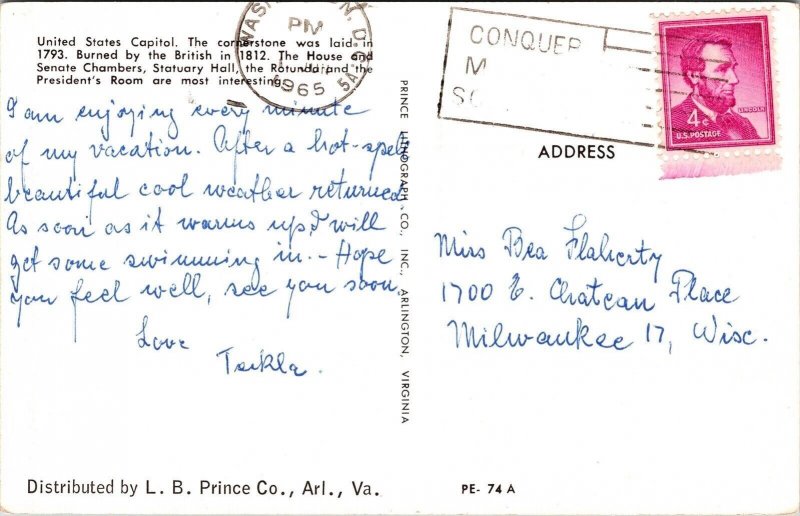 United States Capitol. The cornerstone was laid in
1793. Burned by the British in 1812. The House and
Senate Chambers, Statuary Hall, the Rotunda and the
President's Room are most interesting.
I am enjoying every minute
of my vacation. After a hot-spell
beautiful cool weather returned.
As soon as it warms up, I will
get some swimming in. - Hope
you feel well, see you soon.
Love
Tekla.
PRINCE LITHOGRAPH CO., INC., ARLINGTON, VIRGINIA
WASH N, D.C.
PM
1965
5A
CONQUER
M
SC
LINCOLN
4¢
U.S. POSTAGE
ADDRESS
Miss Bea Flaherty
1700 E. Chateau Place
Milwaukee 17, Wisc.
Distributed by L. B. Prince Co., Arl., Va.
PE- 74 A